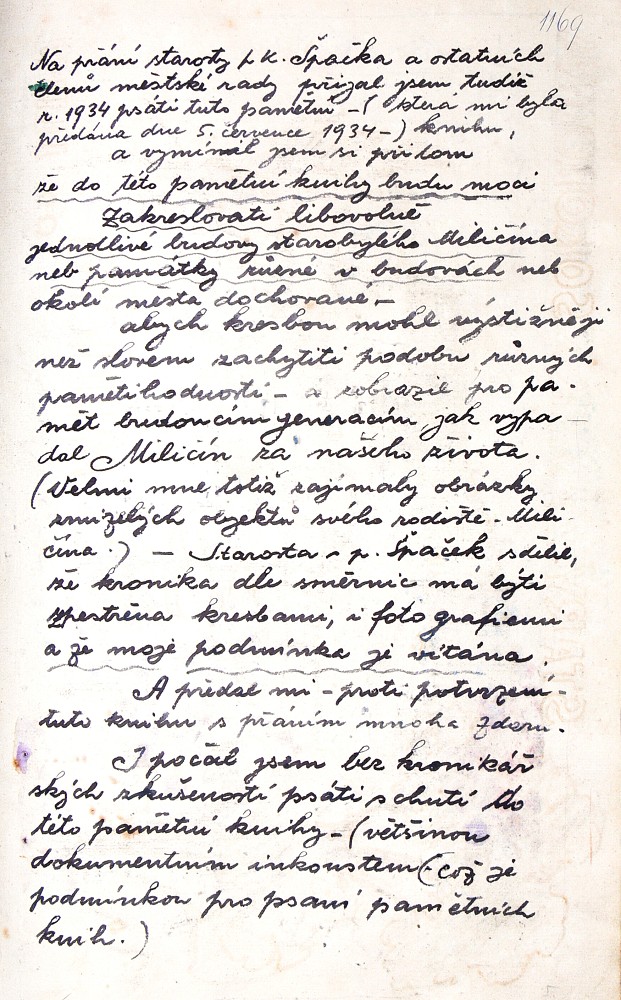 1169
Na přání starosty p. K. Špačka a ostatních
členů městské rady přijal jsem tudíž
r. 1934 psáti tuto pamětní – ( která mi byla
předána dne 5. července 1934 – ) knihu,
a vymínil jsem si přitom
že do této pamětní knihy budu moci
zakreslovati libovolně
jednotlivé budovy starobylého Miličína
neb památky různé v budovách neb
okolí města dochované, –
abych kresbou mohl výstižněji
než slovem zachytiti podobu různých
pamětihodností, – a zobrazil pro pa-
mět budoucím generacím, jak vypa-
dal Miličín za našeho života.
(Velmi mne totiž zajímaly obrázky
zmizelých objektů svého rodiště – Mili-
čína.) – Starosta – p. Špaček sdělil,
že kronika dle směrnic má býti
zpestřena kresbami, i fotografiemi
a že moje podmínka je vítána.
A předal mi – proti potvrzení –
tuto knihu s přáním mnoha zdaru.
I počal jsem bez kronikář
ských zkušeností psáti s chutí do
této pamětní knihy – (většinou
dokumentním inkoustem (což je
podmínkou pro psaní pamětních
knih.)